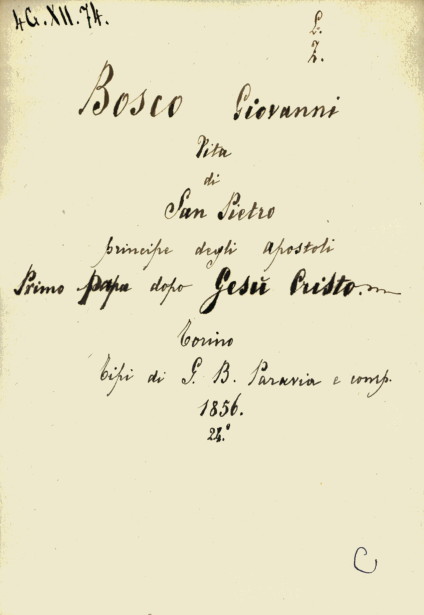 4G.XII.74.
L.
Z.
Bosco Giovanni
Vita
di
San Pietro
principe degli apostoli
Primo papa dopo Gesù Cristo.
Torino
Tipi di G. B. Paravia e comp.
1856.
24.°
C